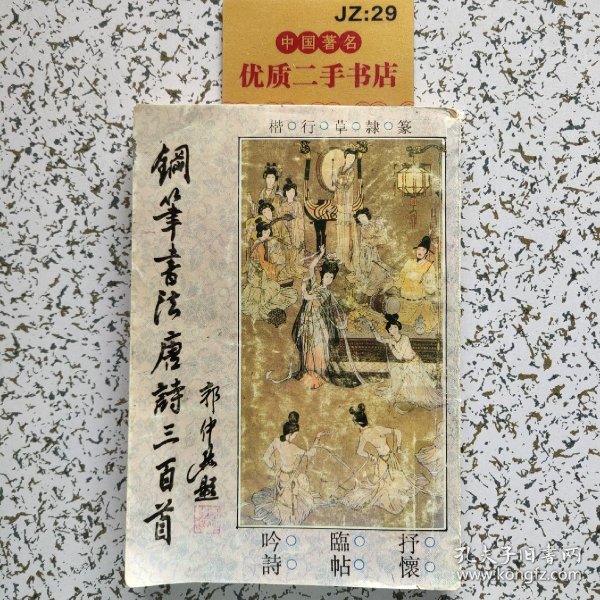 JZ:29
中国著名
优质二手书店
楷○行○草○隸○篆
鋼筆書法唐詩三百首
郭仲选題
抒○懷○
臨○帖○
吟○詩○
孔夫子旧书网
www.kongfz.com